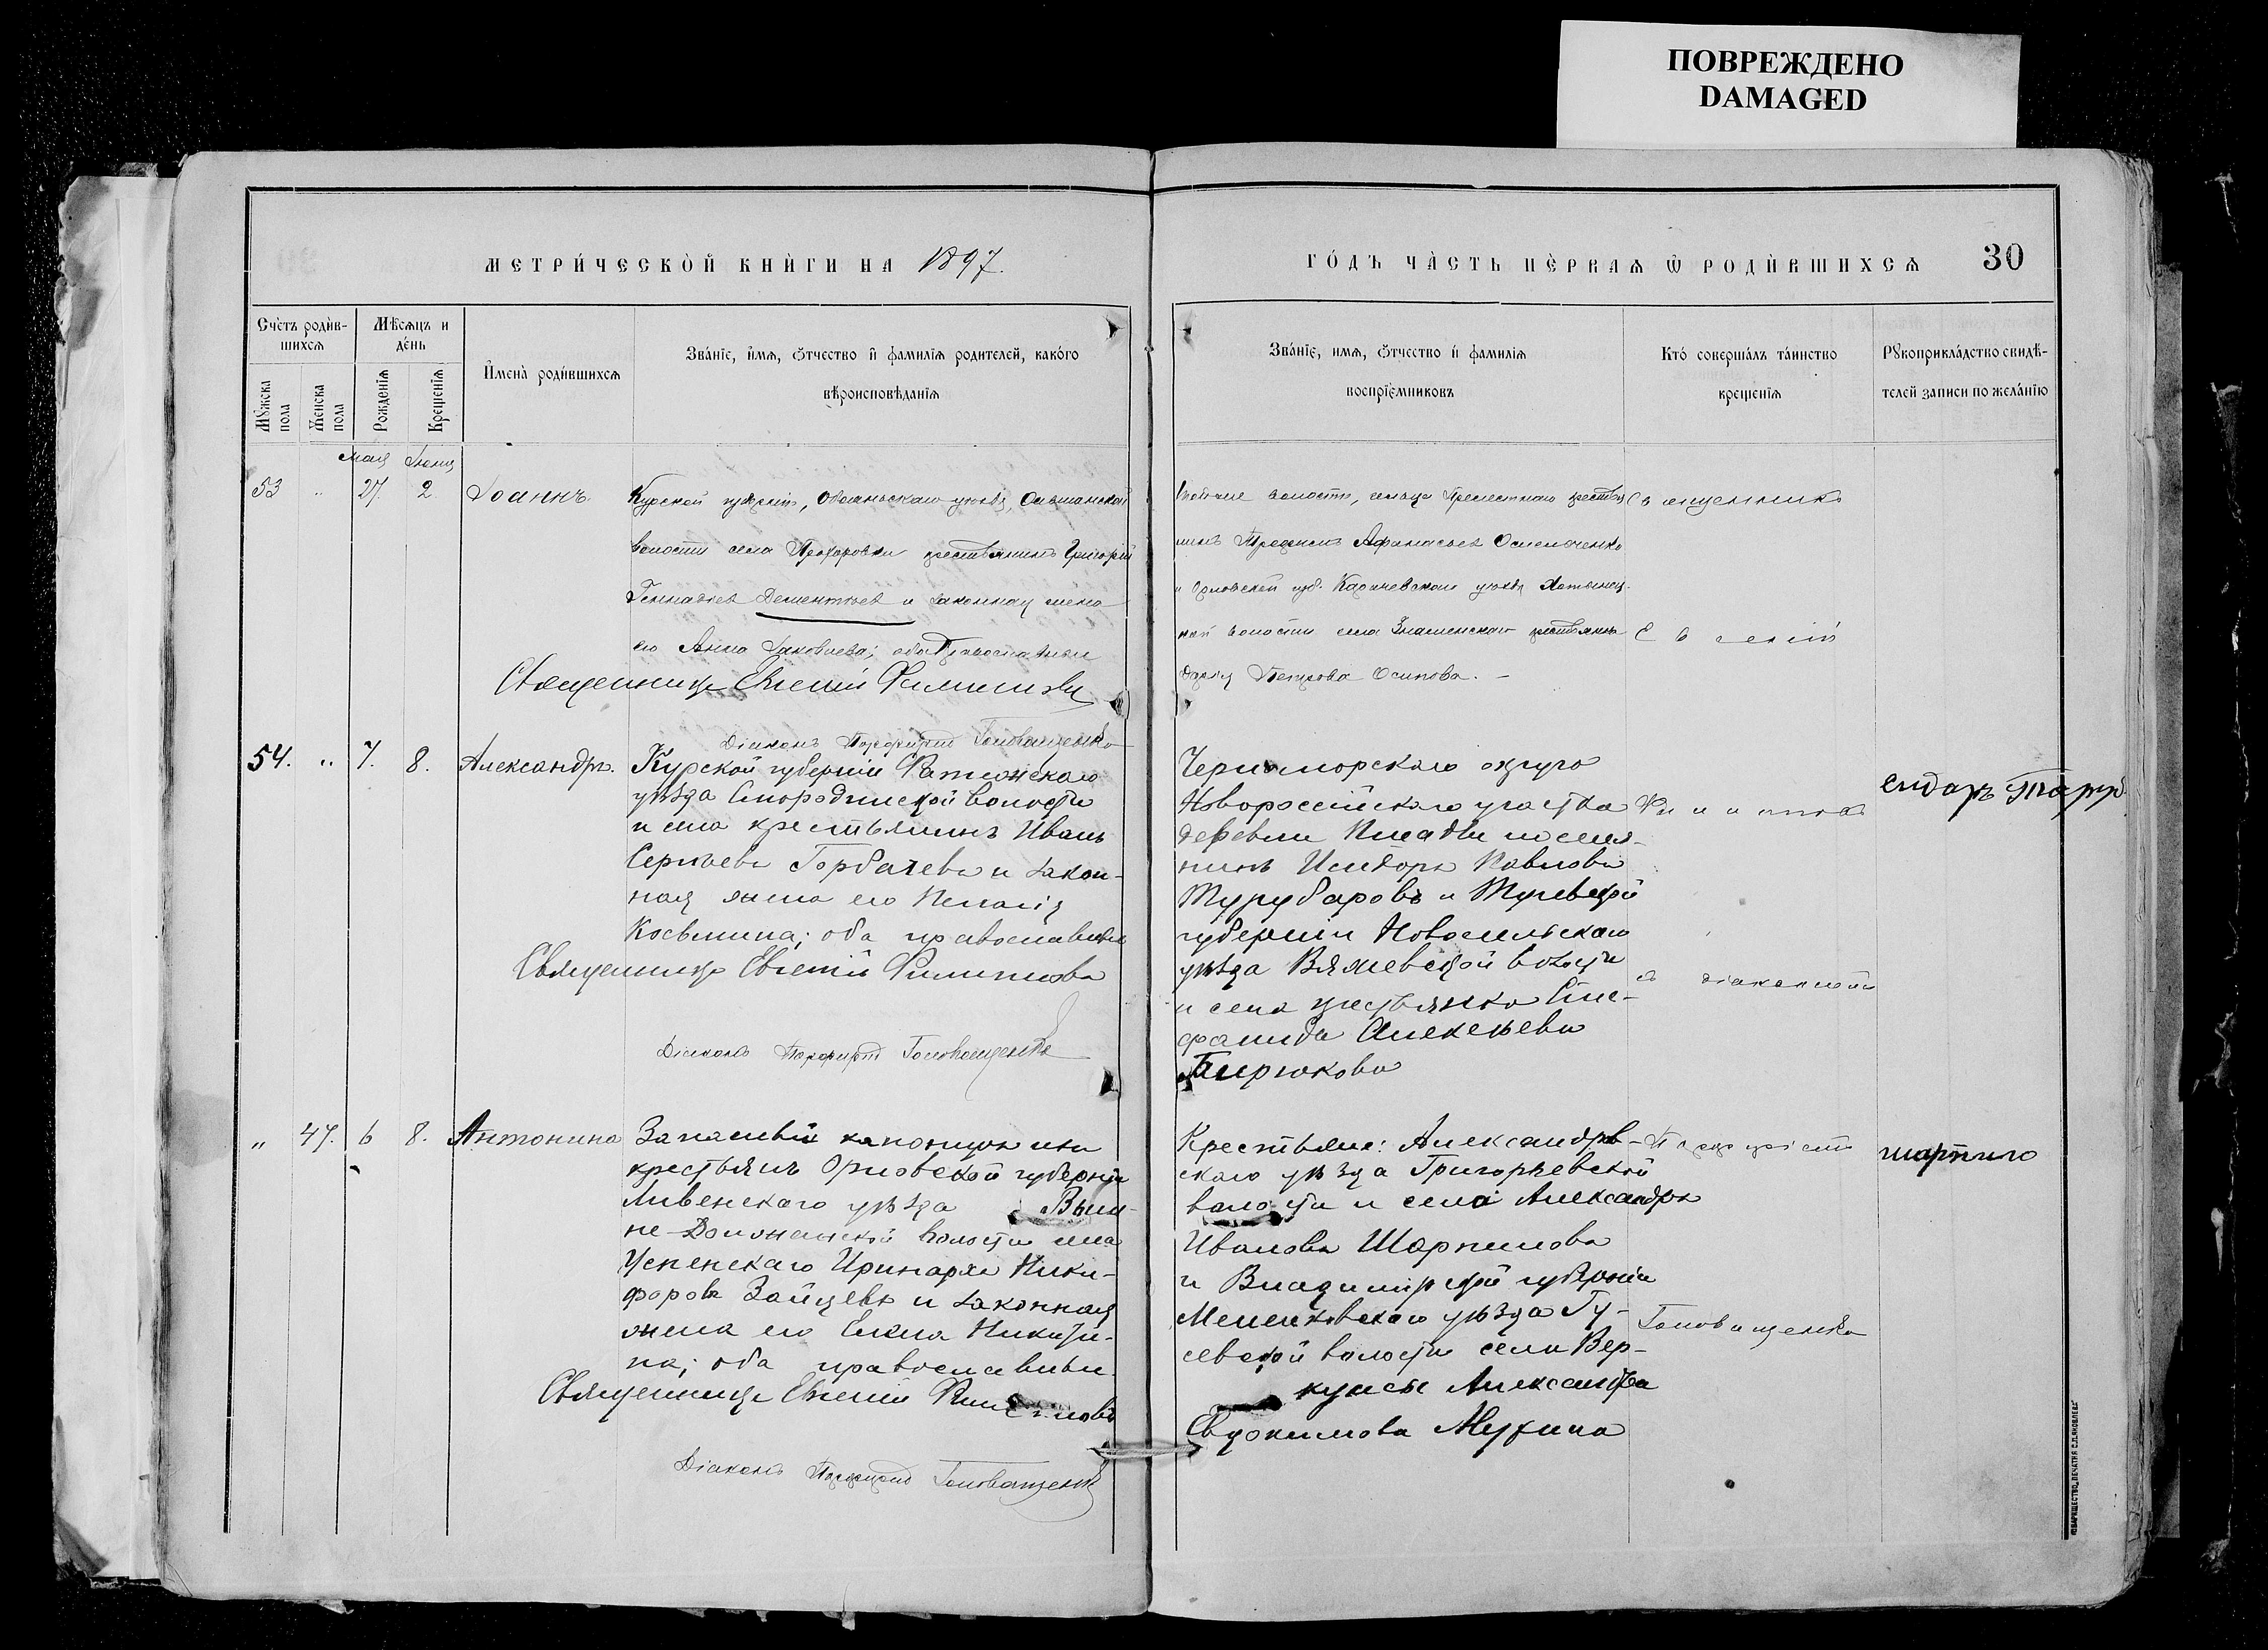 ПОВРЕЖДЕНО
DAMAGED
МЕТРИ́ЧЕСКОЙ КНИ́ГИ НА 1897.
ГО́ДЪ ЧА́СТЬ ПЕ́РВАѦ Ѿ РОДИ́ВШИХСѦ 30
Счетъ родив-
шихсѧ
Мꙋжеска пола
Женска пола
Мѣсѧцъ и
день
Рожденїѧ
Крещенїѧ
Имена родившихсѧ
Званїе, имѧ, ѿчество и фамилїѧ родителей, какого
вѣроисповѣданїѧ
Званїе, имѧ, ѿчество и фамилїѧ
воспрїемниковъ
Кто совершалъ таинство
крещенїѧ
Рꙋкоприкладство свидѣ-
телей записи по желанїю
Мая Іюня
53 " 27. 2 Іоаннъ.
Курской губерніи, Обоянскаго уѣзда,
волости села Прохоровки крестьянинъ Григорій
Геннадіевъ Дементьевъ и законная жена
его Анна Іаковлева; оба православные
Священникъ Евгеній Филипповъ
Діаконъ Порфирій Головащенко
волости, сельца крестья
нинъ Афанасьевъ
и Орловской губ. Карачевскаго уѣзда Хотынец-
кой волости села Знаменскаго крестьянка
Дарія Петрова Осипова. –
Священникъ
Евгеній
54. " 7. 8. Александръ.
Курской губерніи Фатежскаго
уѣзда Смородинской волости
и села крестьянинъ Иванъ
Сергѣевъ Горбачевъ и закон-
ная жена его Пелагія
Косьмина; оба православные
Священникъ Евгеній Филипповъ
Діаконъ Порфирій Головащенко
Черноморскаго округа
Новороссійскаго участка
деревни Пшады поселя-
нинъ Исидоръ Павловъ
Турубаровъ и Тульской
губерніи Новосильскаго
уѣзда Вяжевской волости
и села крестьянка Сте-
фанида Алексѣева
Бирюкова
Филипповъ
съ діакономъ
" 47. 6 8. Антонина
Запасный канониръ изъ
крестьянъ Орловской губерніи
Ливенскаго уѣзда Выш-
не-Долженской волости села
Успенскаго Иринархъ Ники-
форовъ Зайцевъ и законная
жена его Елена Никити-
на; оба православные.
Священникъ Евгеній Филипповъ
Діаконъ Порфирій Головащенко
Крестьяне: Александров-
скаго уѣзда Григорьевской
волости и села Александръ
Ивановъ Шарпиловъ
и Владимірской губерніи
Меленковскаго уѣзда Гу-
севской волости села Вер-
кутсы Александра
Евдокимова Мухина
Порфиріемъ
Головащенко